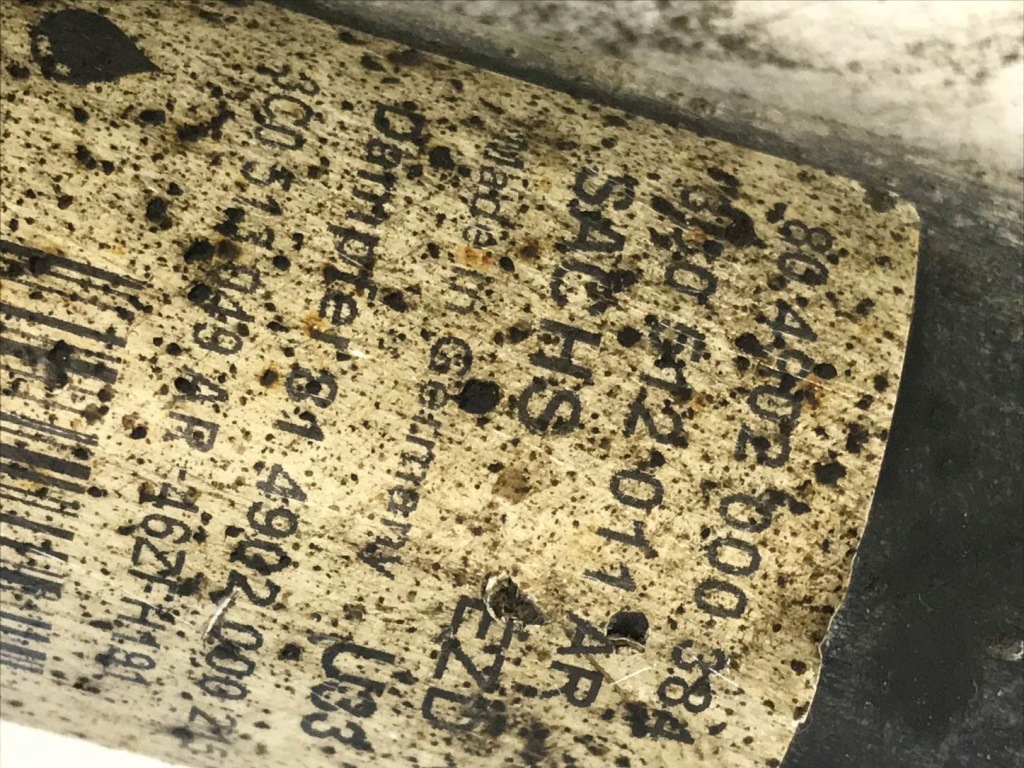 80 4A02 000 384
3C0 512 011 AR
SACHS EZD
Made in Germany
Dämpfer U33
81 4902 000 25
3C0 513 049 AR -46ZH191